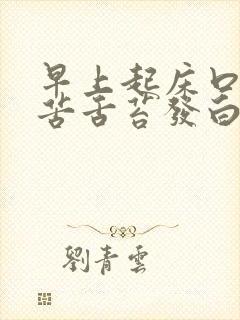 早上起床口
苦舌苔發白
劉青雲